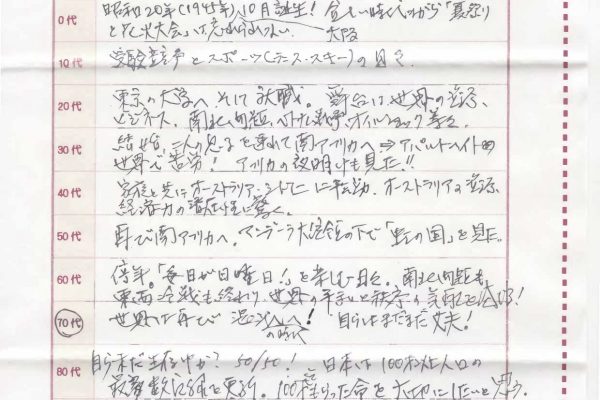 0代
昭和20年(1945年)10月誕生! 貧しい時代だから「夏祭り
と花火大会」は忘れられない。
大阪
10代
受験戦争とスポーツ(テニス・スキー)の日々。
20代
東京の大学へ そして就職。舞台は世界の資源、
ビジネス。南北問題、ベトナム戦争、オイルショック等々。
30代
結婚、二人の児を連れて南アフリカへ ⇒ アパルトヘイト
世界で苦労! アフリカの夜明けも見た!!
40代
家族と共にオーストラリア・シドニーに転勤。オーストラリアの資源、
経済力の潜在性に驚く。
50代
再び南アフリカへ。マンデーラ大統領の下で「虹の国」を見た。
60代
停年。「毎日が日曜日!」を楽しむ日々。南北問題も
東西冷戦も終わり 世界の平和と秩序の気配を感じる!
70代
世界は再び混沌へ!
の時代
自らはまだまだ丈夫!
80代
自ら未だ生存中か? 50/50! 日本は100才以上人口の
最多数記録を更新。100才となった命を大切にしたいと思う。